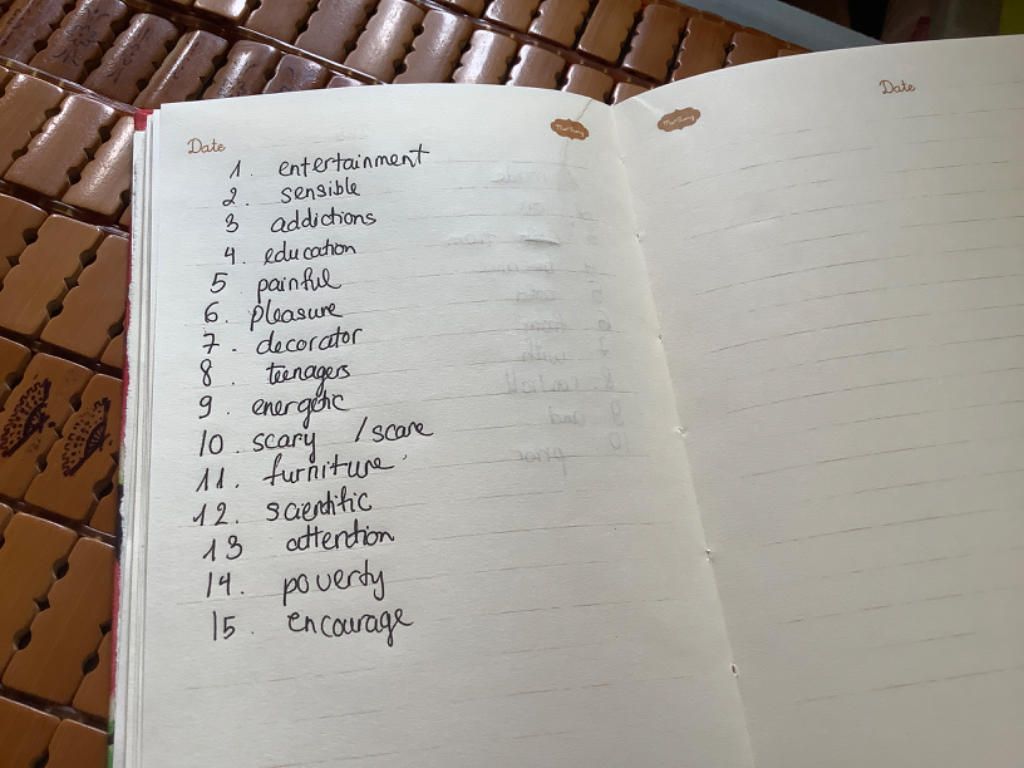 Date
1. entertainment
2. sensible
3 addictions
4. education
5 painful
6. pleasure
7. decorator
8. teenagers
9. energetic
10. scary / scare
11. furniture
12. scientific
13 attention
14. poverty
15. encourage
Date